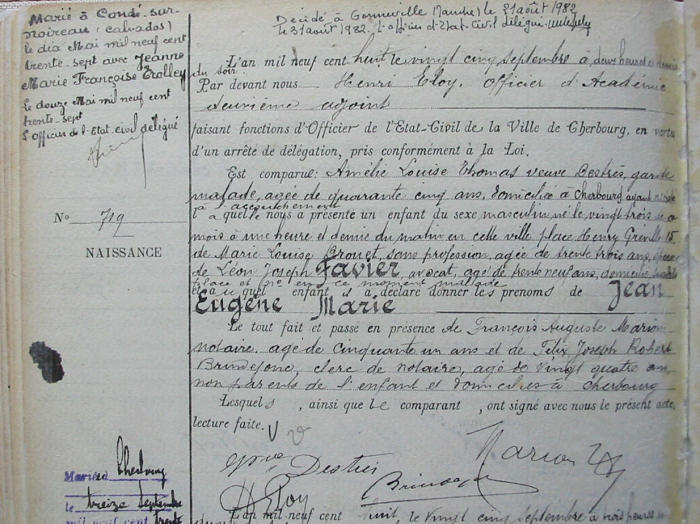 Marié à Condé-sur-
noireau (Calvados)
le dix Mai mil neuf cent
trente-sept avec Jeanne
Marie Françoise Trolley
le douze Mai mil neuf cent
trente-sept
L'Officier de l'Etat civil délégué
Décédé à Gonneville (Manche) le 21 août 1982
le 31 août 1982. L'officier d'Etat-Civil délégué
L'an mil neuf cent huit le vingt cinq septembre à deux heures et demie
du soir
Par devant nous Henri Eloy, Officier d'Académie
deuxième adjoint
faisant fonctions d'Officier de l'Etat-Civil de la Ville de Cherbourg, en vertu
d'un arrêté de délégation, pris conformément à la Loi.
Est comparue: Amélie Louise Thomas veuve Destrés, garde
malade, agée de quarante cinq ans, domiciliée à Cherbourg ayant assisté
à l'accouchement
laquelle nous a présenté un enfant du sexe masculin né le vingt trois de ce
mois à une heure et demie du matin en cette ville place Henry Gréville 15
de Marie Louise Drouet, sans profession, agée de trente trois ans, épouse
de Léon Joseph Favier, avocat, agé de trente neuf ans, domiciliés
place et en ce moment
et auquel enfant a déclaré donner les prénoms de Jean
Eugène Marie
Le tout fait et passé en présence de François Auguste Marion
notaire, agé de cinquante un ans et de Félix Joseph Robert
Brindejonc, clerc de notaire, agé de vingt quatre ans
non parents de l'enfant et domiciliés à Cherbourg
Lesquels, ainsi que le comparant, ont signé avec nous le présent acte,
lecture faite.
N° 719
NAISSANCE
Vve Destrés
Marion
HEloy
Brindejonc
Marié à Cherbourg
le treize septembre
mil neuf cent trente
L'an mil neuf cent huit, le vingt cinq septembre à